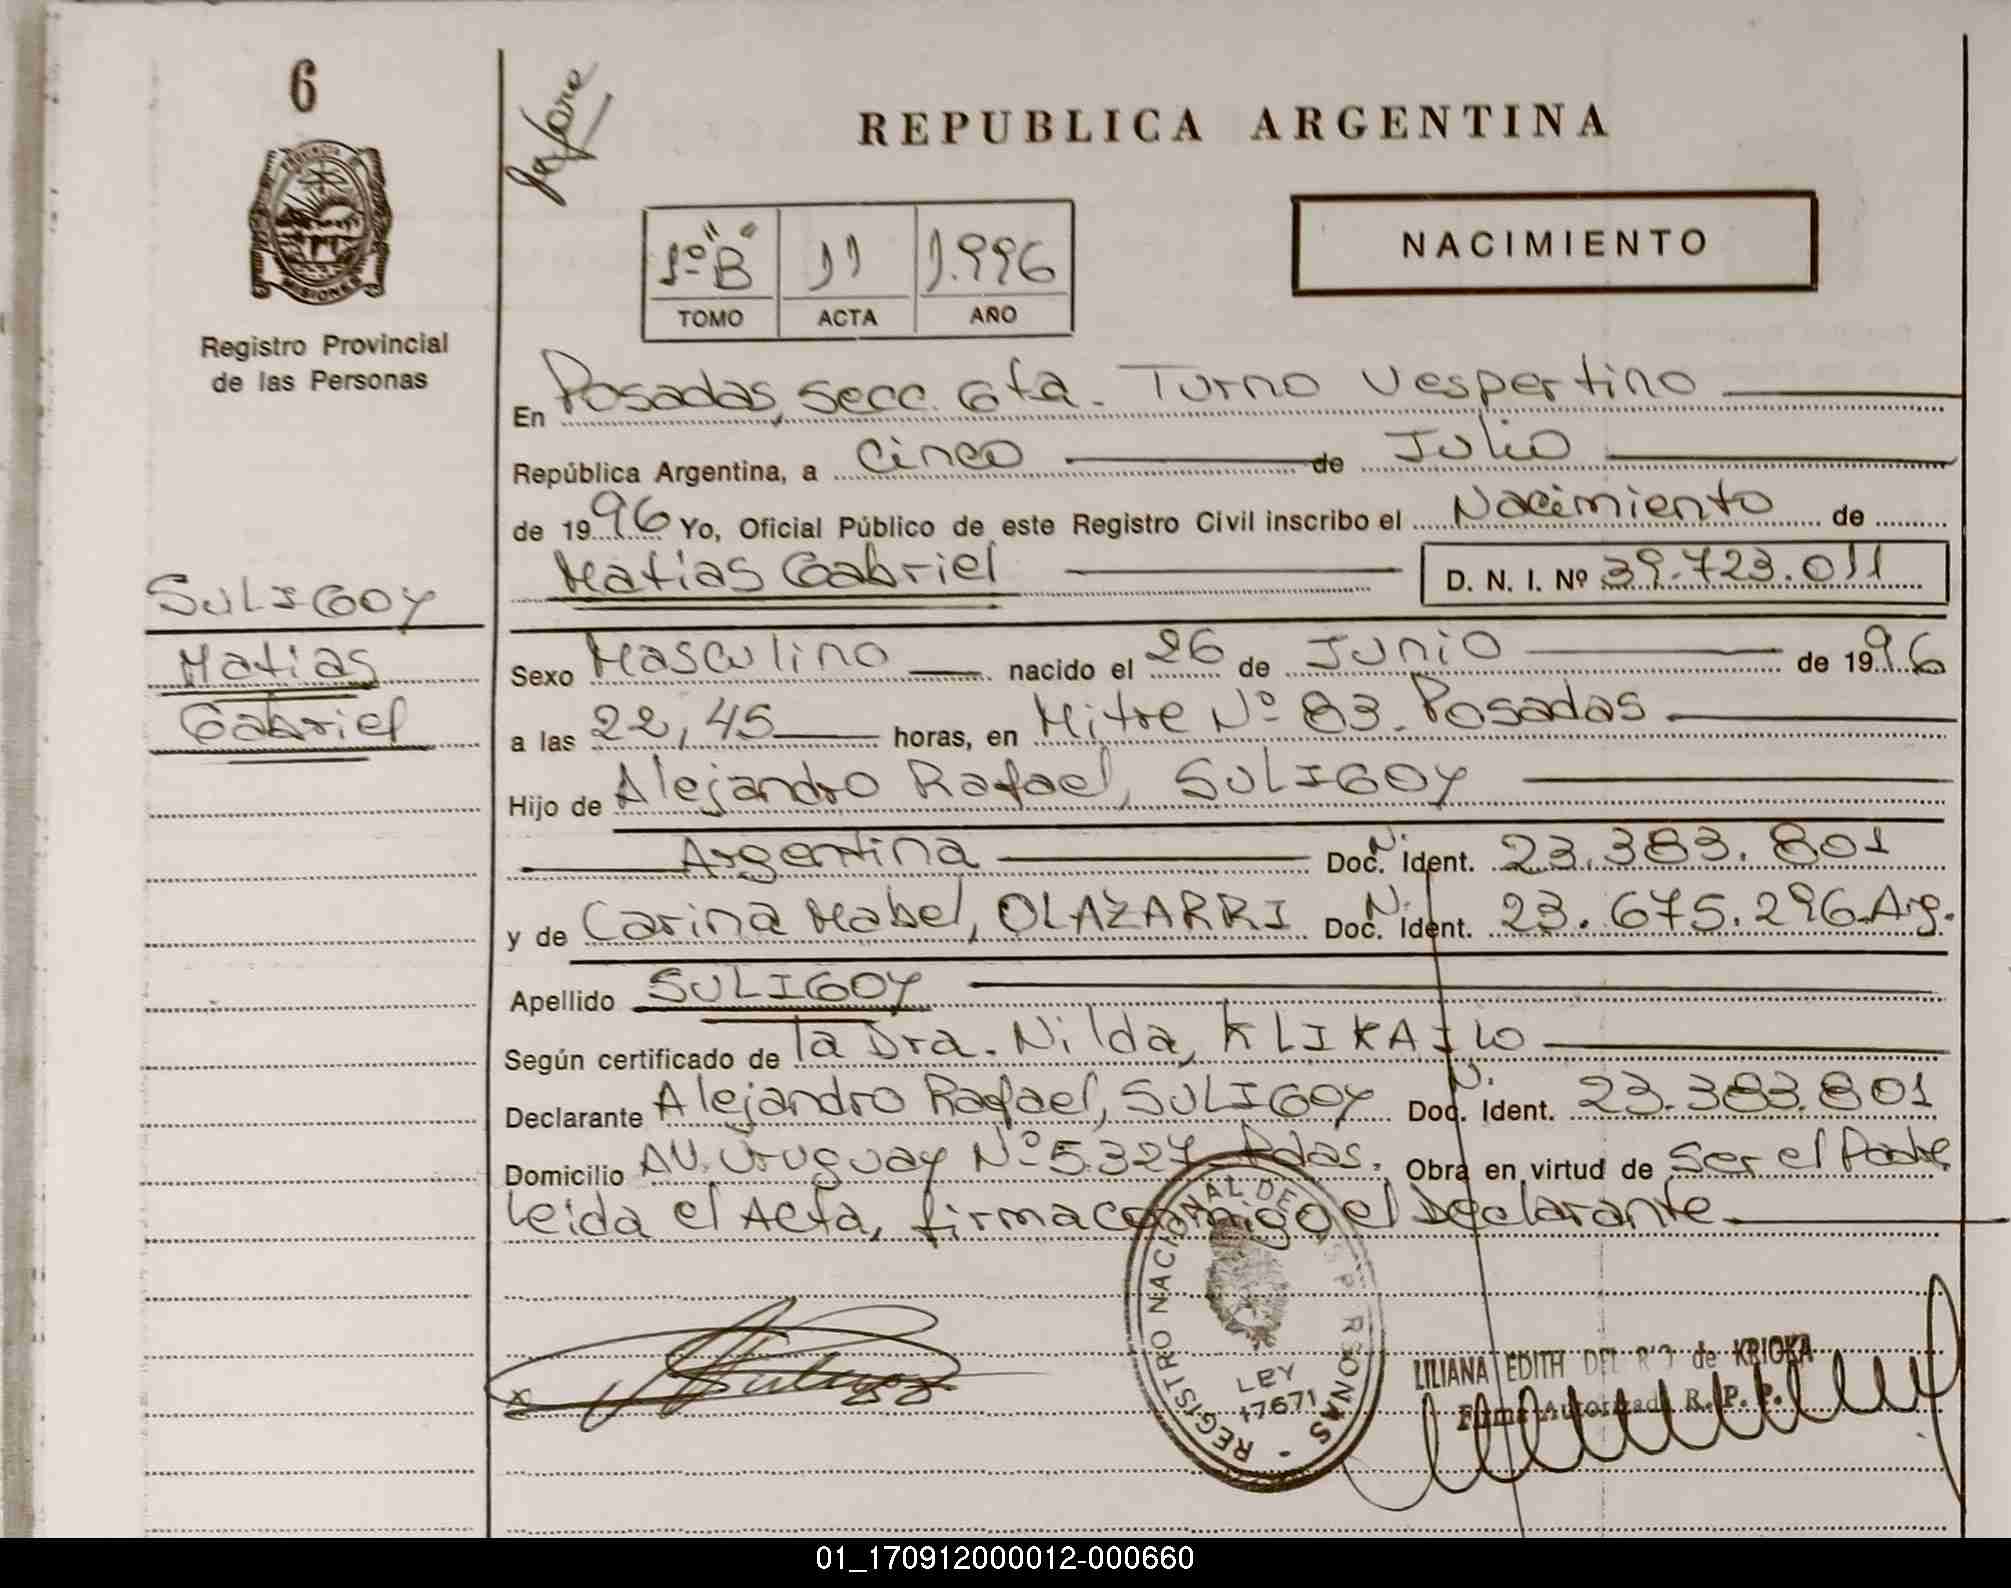 6
PROVINCIA D
MISIONES
Registro Provincial
de las Personas
REPUBLICA ARGENTINA
1º "B" 11 1.996
TOMO ACTA AÑO
NACIMIENTO
En Posadas, Secc. 6ta. Turno Vespertino
República Argentina, a Cinco de Julio
de 1996 Yo, Oficial Público de este Registro Civil inscribo el Nacimiento de
Matias Gabriel D. N. I. Nº 39.723.011
SULIGOY
Matias
Gabriel
Sexo Masculino nacido el 26 de Junio de 1996
a las 22,45 horas, en Mitre Nº 83. Posadas
Hijo de Alejandro Rafael, SULIGOY
Argentina Doc. N. Ident. 23.383.801
y de Carina Mabel, OLAZARRI Doc. N. Ident. 23.675.296 Arg.
Apellido SULIGOY
Según certificado de la Dra. Nilda, KLIKAILO
Declarante Alejandro Rafael, SULIGOY Doc. N. Ident. 23.383.801
Domicilio AV. Uruguay Nº 5.327 Pdas. Obra en virtud de Ser el Padre
Leida el Acta, firma conmigo el Declarante
REGISTRO NACIONAL DE LAS PERSONAS -
LEY
17671
LILIANA EDITH DEL RIO de KRIOKA
Firma Autorizada R. P. P.
01_170912000012-000660